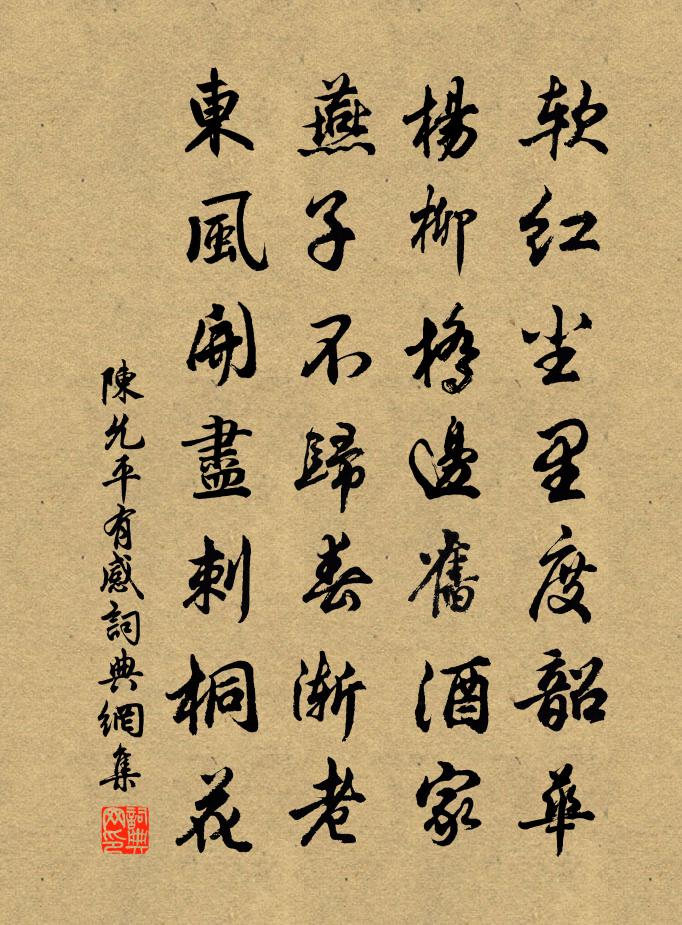 軟紅塵里度韶華
楊柳橋邊舊酒家
燕子不歸春漸老
東風開盡刺桐花
陳允平有感詞典網集
詞典網印